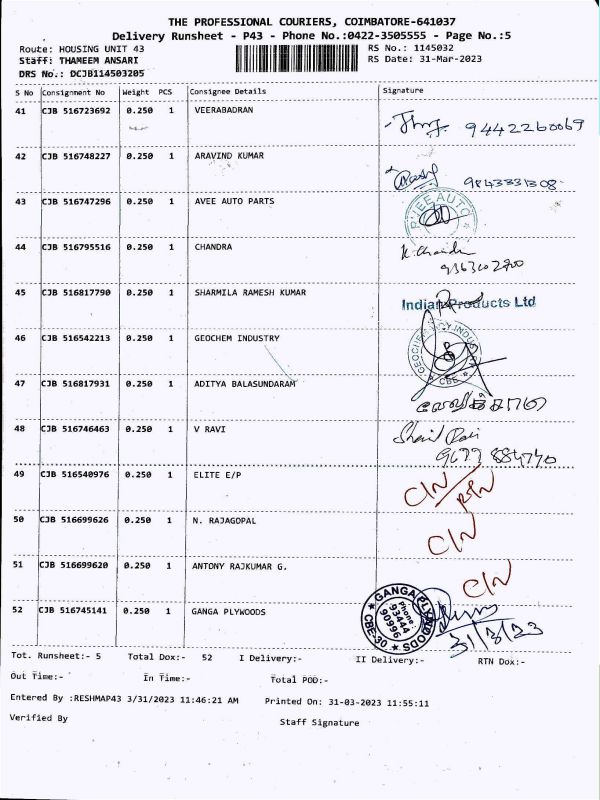 THE PROFESSIONAL COURIERS, COIMBATORE-641037
Delivery Runsheet - P43 - Phone No.:0422-3505555 - Page No.:5
Route: HOUSING UNIT 43 RS No.: 1145032
Staff: THAMEEM ANSARI RS Date: 31-Mar-2023
DRS No.: DCJB114503205
S No Consignment No Weight PCS Consignee Details Signature
41 CJB 516723692 0.250 1 VEERABADRAN
9442260069
42 CJB 516748227 0.250 1 ARAVIND KUMAR
9843331308
43 CJB 516747296 0.250 1 AVEE AUTO PARTS
AUTO
44 CJB 516795516 0.250 1 CHANDRA
K. Chandra
45 CJB 516817790 0.250 1 SHARMILA RAMESH KUMAR
Indian Products Ltd
46 CJB 516542213 0.250 1 GEOCHEM INDUSTRY
CBE
47 CJB 516817931 0.250 1 ADITYA BALASUNDARAM
48 CJB 516746463 1 V RAVI
9677 884740
49 CJB 516540976 0.250 1 ELITE E/P
C/N
50 CJB 516699626 0.250 1 N. RAJAGOPAL
C/N
51 CJB 516699620 0.250 1 ANTONY RAJKUMAR G.
C/N
52 CJB 516745141 0.250 1 GANGA PLYWOODS
GANGA PLYWOODS
Phone:
93444
90996
CBE-30
31/3/23
Tot. Runsheet:- 5 Total Dox:- 52 I Delivery:- II Delivery:- RTN Dox:-
Out Time:- In Time:- Total POD:-
Entered By :RESHMAP43 3/31/2023 11:46:21 AM Printed On: 31-03-2023 11:55:11
Verified By Staff Signature